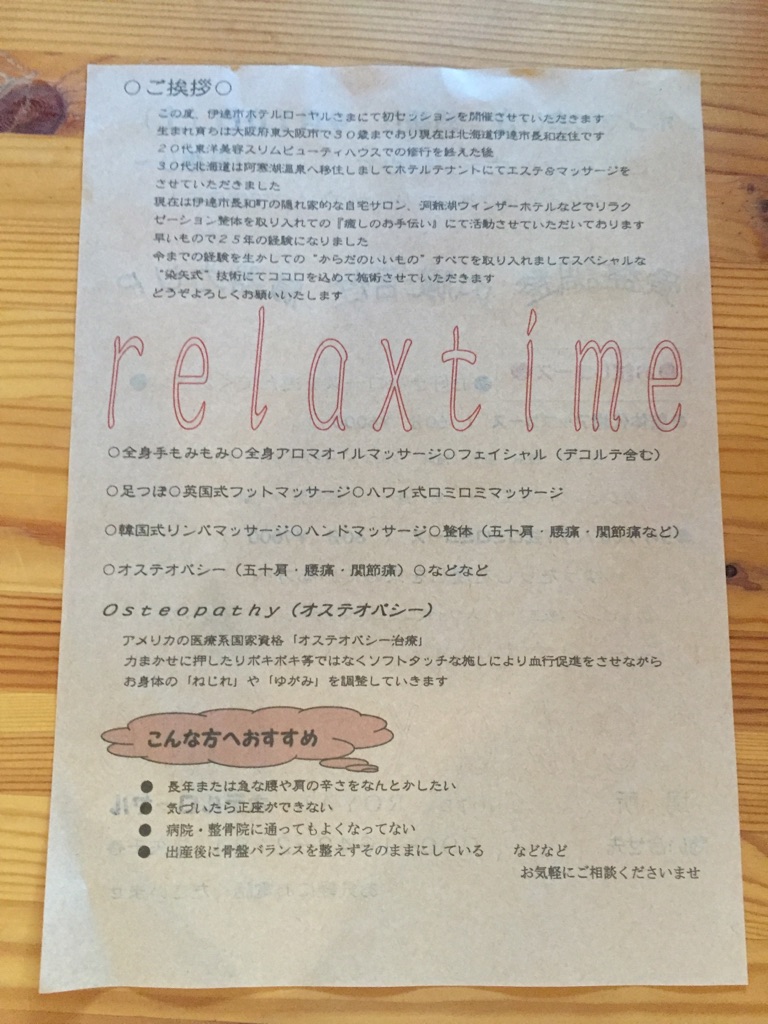 ○ご挨拶○
この度、伊達市ホテルローヤルさまにて初セッションを開催させていただきます
生まれ育ちは大阪府東大阪市で３０歳まであり現在は北海道伊達市長和在住です
２０代東洋美容スリムビューティハウスでの修行を終えた後
３０代北海道は阿寒湖温泉へ移住しましてホテルテナントにてエステ&マッサージを
させていただきました
現在は伊達市長和町の隠れ家的な自宅サロン、洞爺湖ウィンザーホテルなどでリラク
ゼーション整体を取り入れての『癒しのお手伝い』にて活動させていただいております
早いもので２５年の経験になりました
今までの経験を生かしての“からだのいいもの”すべてを取り入れましてスペシャルな
“染矢式”技術にてココロを込めて施術させていただきます
どうぞよろしくお願いいたします
relaxtime
○全身手もみもみ○全身アロマオイルマッサージ○フェイシャル（デコルテ含む）
○足つぼ○英国式フットマッサージ○ハワイ式ロミロミマッサージ
○韓国式リンパマッサージ○ハンドマッサージ○整体（五十肩・腰痛・関節痛など）
○オステオパシー（五十肩・腰痛・関節痛）○などなど
Osteopathy（オステオパシー）
アメリカの医療系国家資格「オステオパシー治療」
力まかせに押したりボキボキ等ではなくソフトタッチな施しにより血行促進をさせながら
お身体の「ねじれ」や「ゆがみ」を調整していきます
こんな方へおすすめ
● 長年または急な腰や肩の辛さをなんとかしたい
● 気づいたら正座ができない
● 病院・整骨院に通ってもよくなってない
● 出産後に骨盤バランスを整えずそのままにしている　　などなど
お気軽にご相談くださいませ